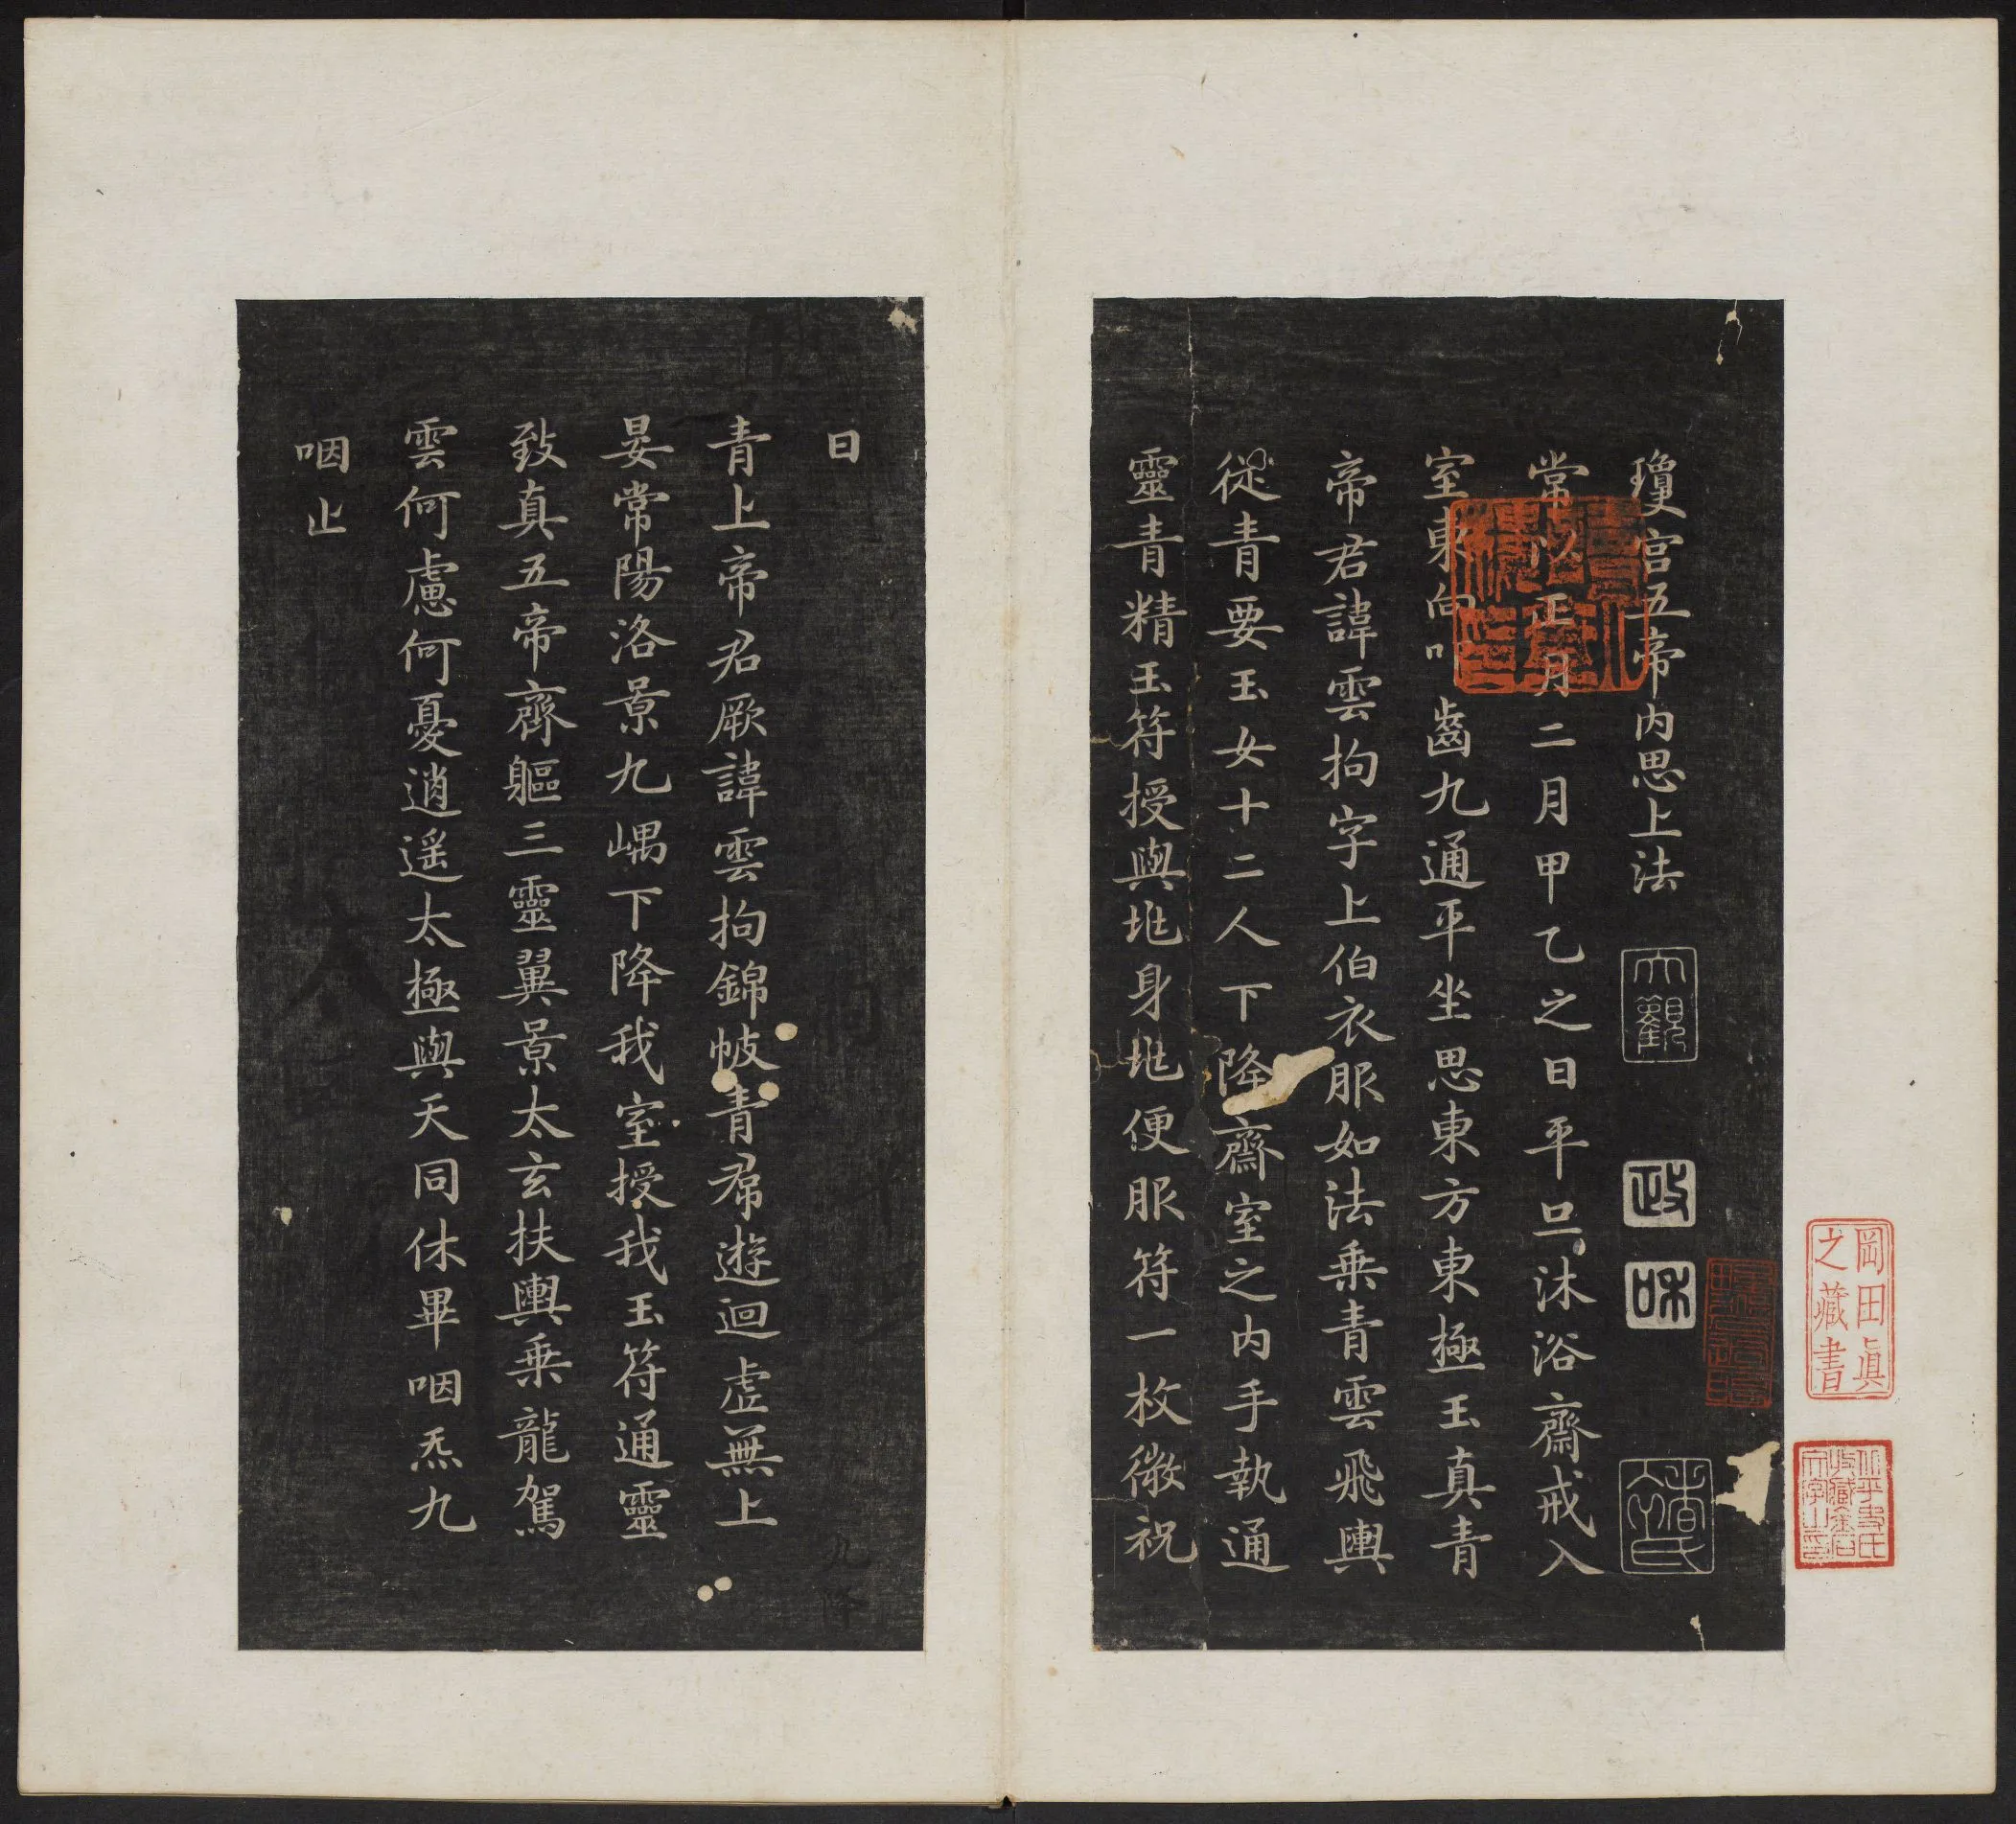 瓊宮五帝內思上法
常以正月二月甲乙之日平旦沐浴齋戒入
室東向叩齒九通平坐思東方東極玉真青
帝君諱雲拘字上伯衣服如法乘青雲飛輿
從青要玉女十二人下降齋室之內手執通
靈青精玉符授與地身地便服符一枚微祝
曰
青上帝君厥諱雲拘錦帔青帬遊迴虛無上
晏常陽洛景九嵎下降我室授我玉符通靈
致真五帝齊軀三靈翼景太玄扶輿乘龍駕
雲何慮何憂逍遙太極與天同休畢咽炁九
咽止
大觀
政和
岡田真
之藏書